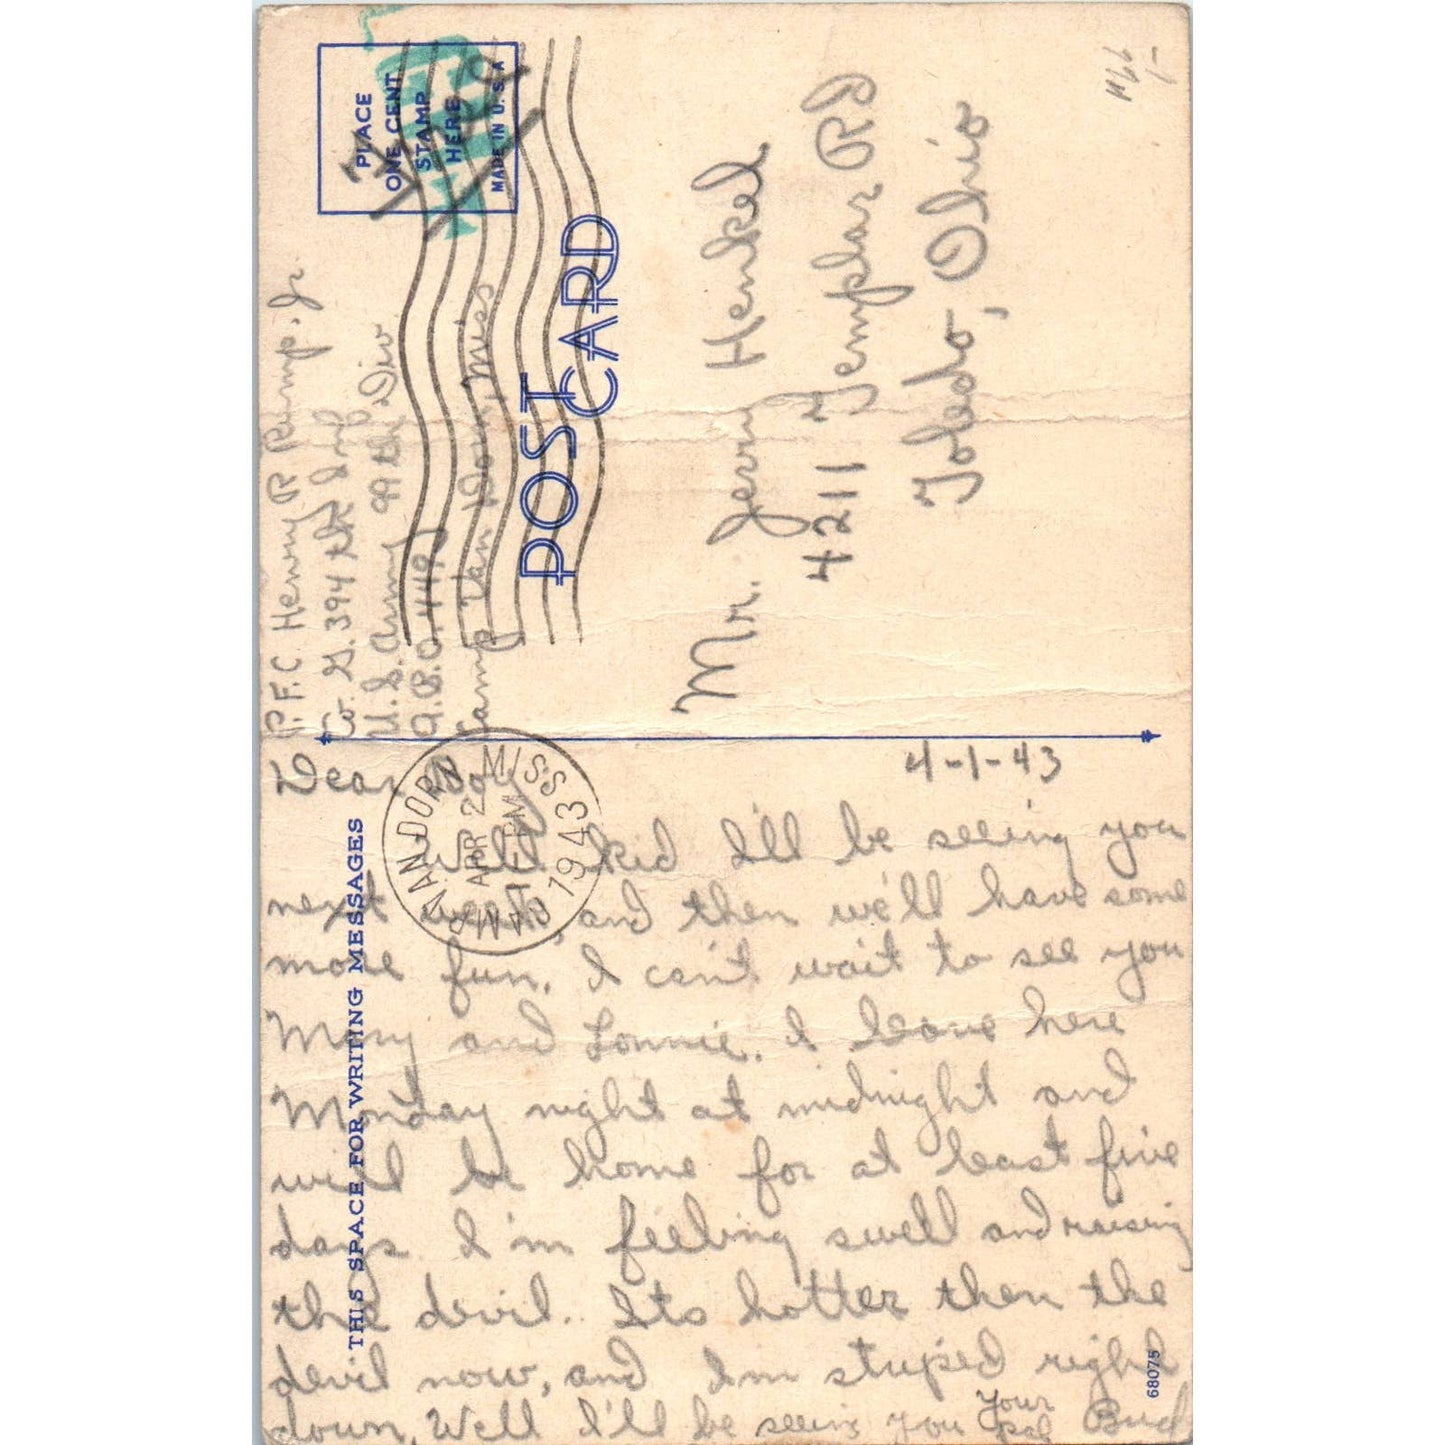 P.F.C. Henry R. Rump. Jr.
Co. G. 394 th Inf
U.S. Army 99 th Div
A.P.O. 449
Camp Van Dorn, Miss
Free
PLACE
ONE CENT
STAMP
HERE
MADE IN U.S.A
POST CARD
Mr. Jerry Henkel
4211 Templar RD
Toledo, Ohio
CAMP VAN DORN MISS
APR 2
PM
1943
THIS SPACE FOR WRITING MESSAGES
4-1-43
Dear Boy
Well kid I'll be seeing you
next week, and then we'll have some
more fun. I can't wait to see you
Mary and Lonnie. I leave here
Monday night at midnight and
will be home for at least five
days. I'm feeling swell and raising
the devil. Its hotter then the
devil now, and I'm striped right
down. Well I'll be seein you
Your
Pal Bud
68075